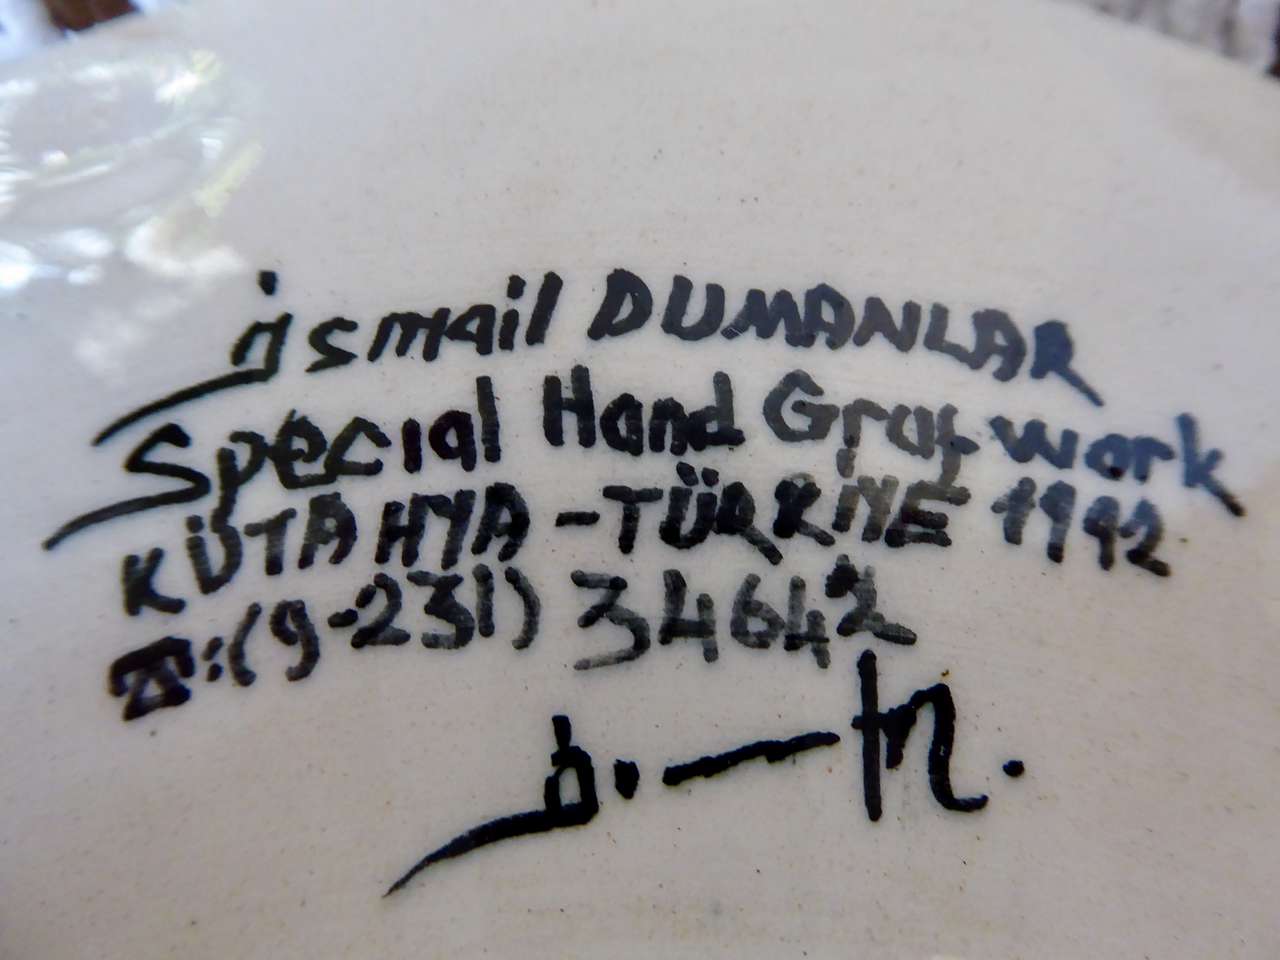 ismail DUMANLAR
Special Hand Graf work
KÜTAHYA - TÜRKİYE 1992
☎:(9-231) 34642